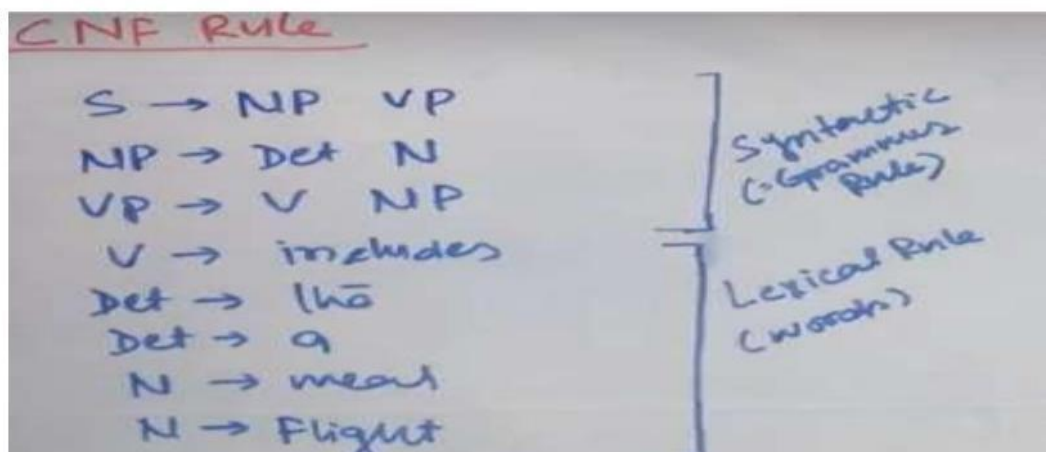 CNF Rule
S → NP VP
NP → Det N
VP → V NP
V → includes
Det →
Det → a
N → meal
N → Flight
Syntactic
(:Grammar
Rule)
Lexical Rule
(words)